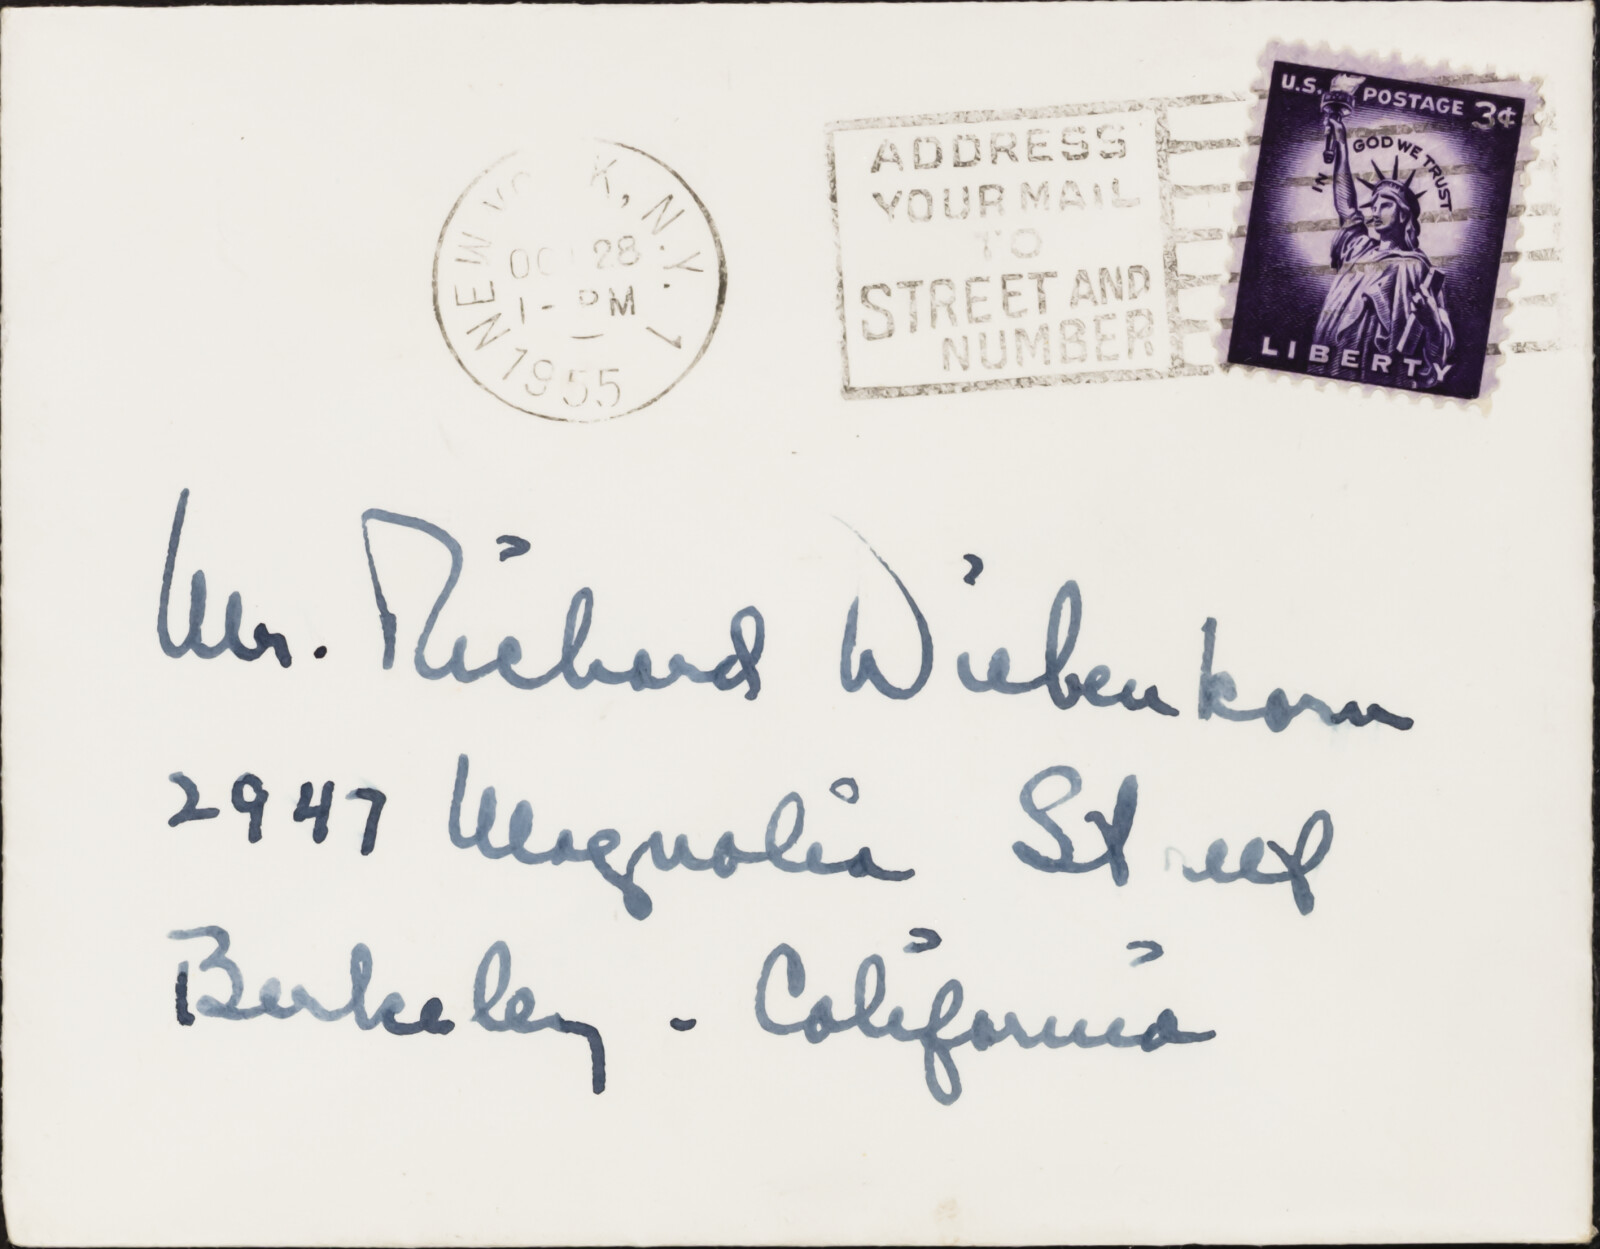 NEW YORK, N.Y. 1
OCT 28
1 - PM
1955
ADDRESS
YOUR MAIL
TO
STREET AND
NUMBER
U.S. POSTAGE 3¢
IN GOD WE TRUST
LIBERTY
Mr. Richard Diebenkorn
2947 Magnolia Street
Berkeley - California